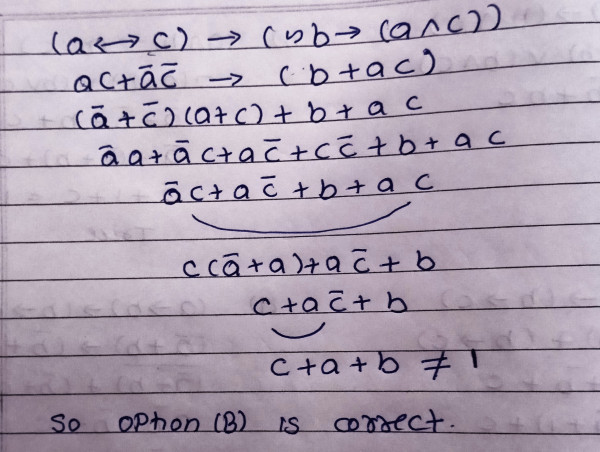 (a ↔ c) → (~b → (a ∧ c))
ac + āc̄ → (b + ac)
(ā + c̄)(a + c) + b + a c
āa + āc + ac̄ + cc̄ + b + a c
āc + ac̄ + b + a c
c(ā + a) + ac̄ + b
c + ac̄ + b
c + a + b ≠ 1
So option (B) is correct.